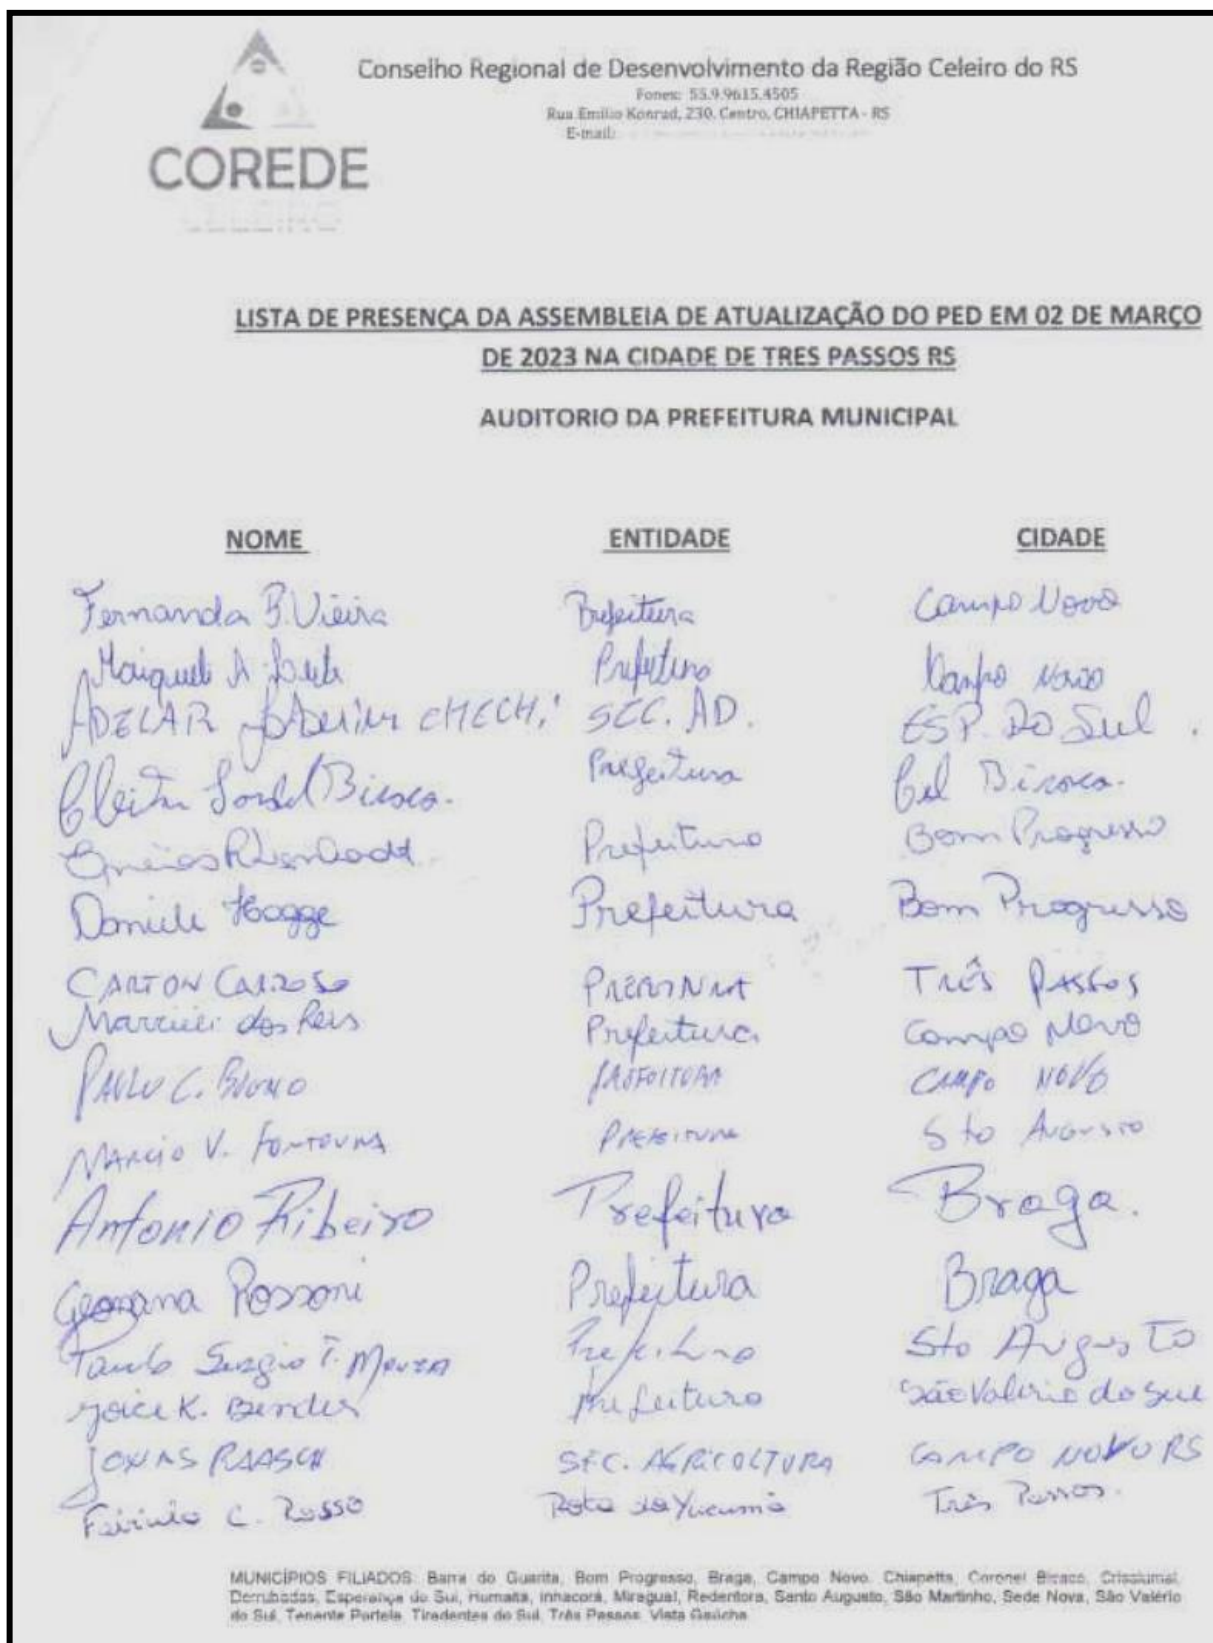 Conselho Regional de Desenvolvimento da Região Celeiro do RS
Fones: 55.9.9615.4505
Rua Emilio Konrad, 230. Centro, CHIAPETTA - RS
E-mail:
COREDE
CELEIRO
LISTA DE PRESENÇA DA ASSEMBLEIA DE ATUALIZAÇÃO DO PED EM 02 DE MARÇO
DE 2023 NA CIDADE DE TRES PASSOS RS
AUDITORIO DA PREFEITURA MUNICIPAL
NOME ENTIDADE CIDADE
Fernanda B. Vieira Prefeitura Campo Novo
A. Prefeitura Campo Novo
ADELAR CHECHI SEC. AD. ESP. DO Sul.
Prefeitura Cel Bicaco.
Prefeitura Bom Progresso
Daniele Hogge Prefeitura Bom Progresso
CARTON CARDOSO TRÊS PASSOS
dos Reis Prefeitura Campo Novo
PAULO C. PREFEITURA CAMPO NOVO
MARCIO V. FONTOURA PREFEITURA Sto AUGUSTO
Antonio Ribeiro Prefeitura Braga.
Geovana Possoni Prefeitura Braga
Paulo Sergio T. Moura Prefeitura Sto Augusto
Joice K. Bender Prefeitura São Valerio do Sul
JONAS RAASCH SEC. AGRICOLTURA CAMPO NOVO RS
C. Rosso Rota do Yucumã Três Passos.
MUNICÍPIOS FILIADOS: Barra do Guarita, Bom Progresso, Braga, Campo Novo. Chiapetta, Coronel Bicaco, Crissiumal,
Derrubadas, Esperança do Sul, Humaitá, Inhacorá, Miraguai, Redentora, Santo Augusto, São Martinho, Sede Nova, São Valério
do Sul, Tenente Portela, Tiradentes do Sul, Três Passos, Vista Gaúcha